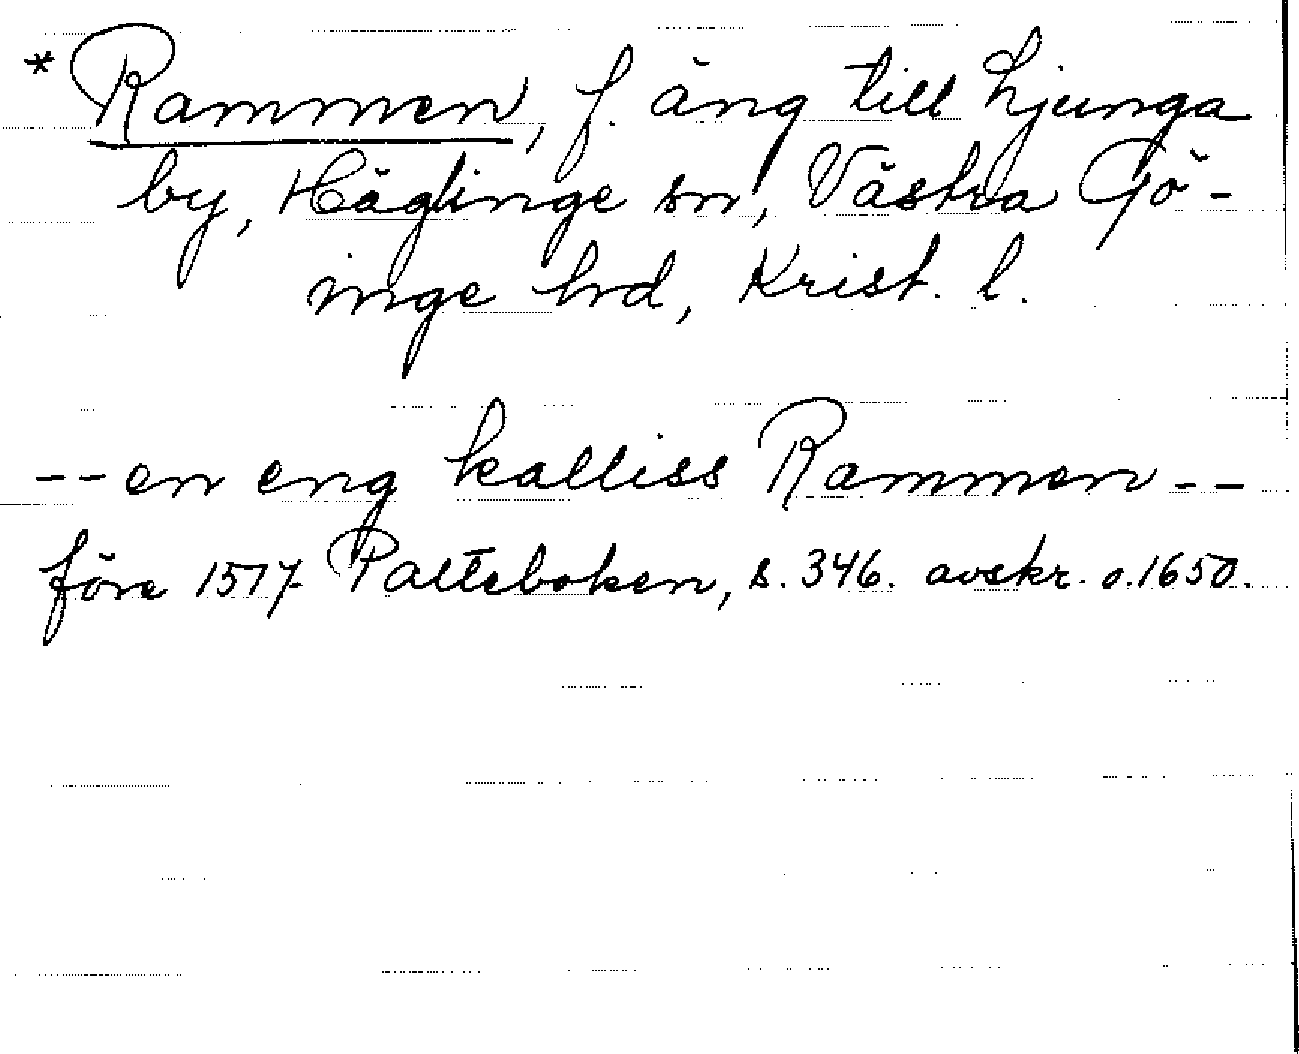 * Rammen, f. äng till Ljunga
by, Häglinge sn, Västra Gö-
inge hrd, Krist. l.
-- en eng kalliss Rammen --
före 1517 Palteboken, s. 346. avskr. o. 1650.